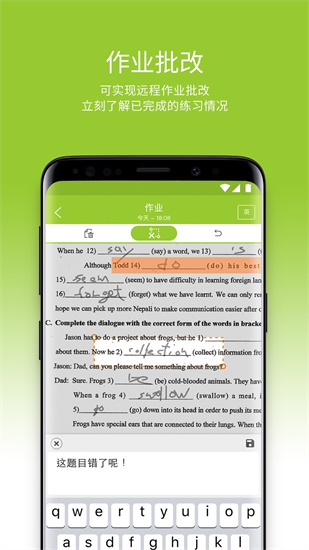 作业批改
可实现远程作业批改
立刻了解已完成的练习情况
作业
今天 - 18:08
英
When he 12) say (say) a word, we 13) 's (s
Although Todd 14) do (do) his best
15) seem (seem) to have difficulty in learning foreign lan
16) forget (forget) what we have learnt. We can only res
hope we can pick up more Nepali to make communication easier after c
C. Complete the dialogue with the correct form of the words in bracke
Jason has to do a project about frogs, but he 1)
about them. Now he 2) collection (collect) information fro
Jason: Dad, can you please tell me something about frogs?
Dad: Sure. Frogs 3) be (be) cold-blooded animals. They have
When a frog 4) swallow (swallow) a meal, i
5) go (go) down into its head in order to push its mo
Frogs have special ears that are connected to their lungs. When
这题目错了呢！
q w e r t y u i o p
a s d f g h j k l